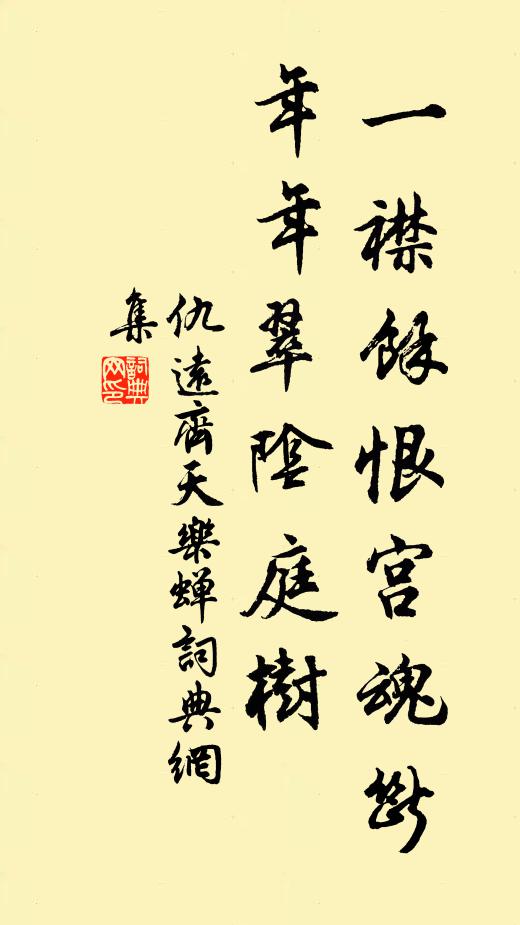 一襟餘恨宫魂斷
年年翠陰庭樹
仇遠齊天樂蝉詞典網
集
詞典
网印